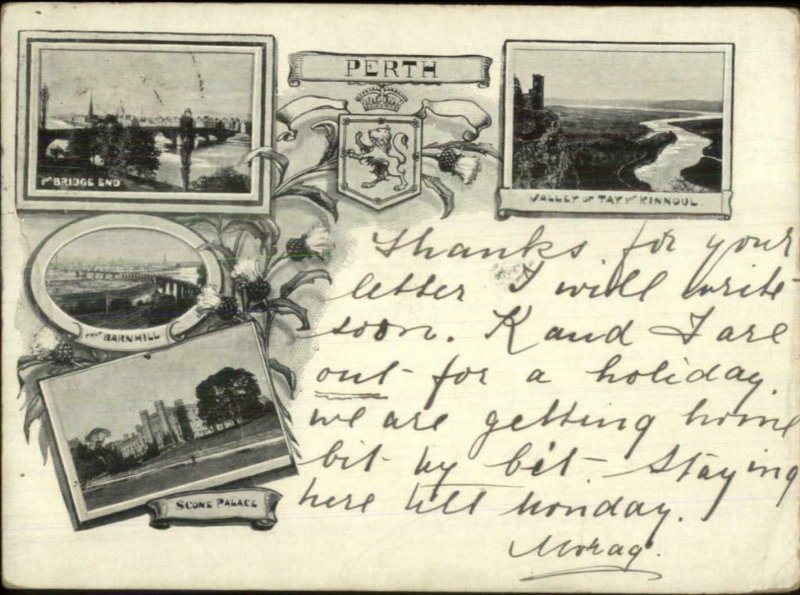 PERTH
FROM BRIDGE END
VALLEY OF TAY FROM KINNOUL.
FROM BARNHILL
SCONE PALACE
Thanks for your
letter I will write
soon. K and I are
out for a holiday.
we are getting home
bit by bit. Staying
here till Monday.
Morag.